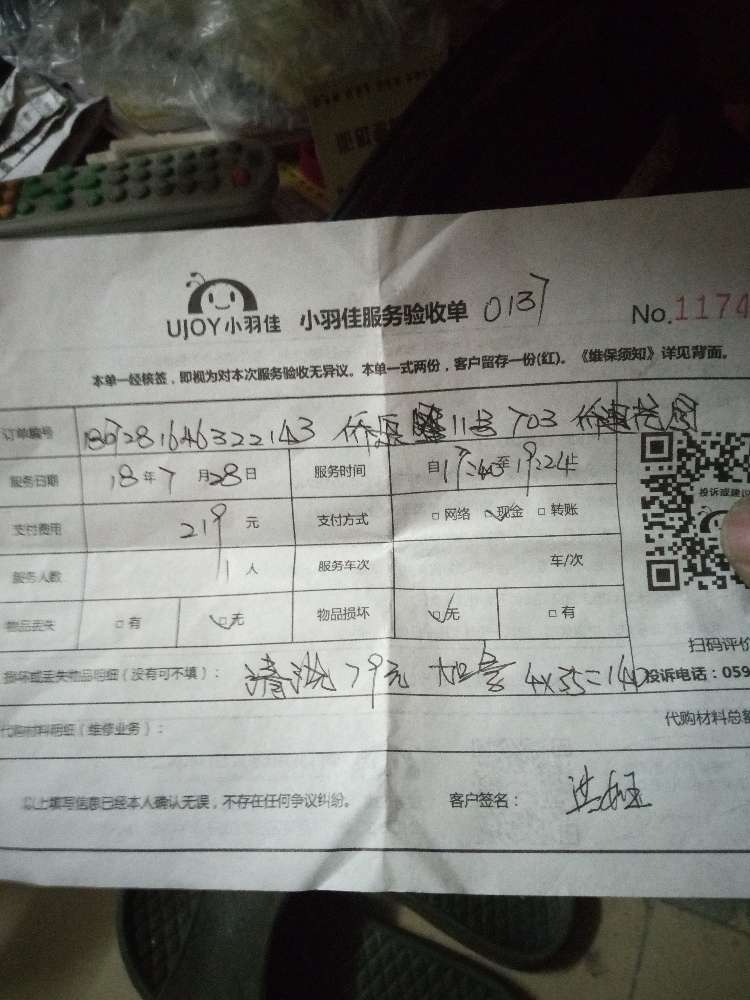 UJOY小羽佳 小羽佳服务验收单 0137 No.1174
本单一经核签，即视为对本次服务验收无异议。本单一式两份，客户留存一份(红)。《维保须知》详见背面。
订单编号 1807281646322143 侨 11号703
服务日期 18年7月28日 服务时间 自17:40至19:24止
投诉或建议
支付费用 219元 支付方式 □网络 □现金 □转账
服务人数 1人 服务车次 车/次
物品丢失 □有 □无 物品损坏 □无 □有
扫码评价
损坏或丢失物品明细（没有可不填）： 清洗79元 加 4×35=140 投诉电话：059
代购材料明细（维修业务）： 代购材料总额
以上填写信息已经本人确认无误，不存在任何争议纠纷。 客户签名： 洪